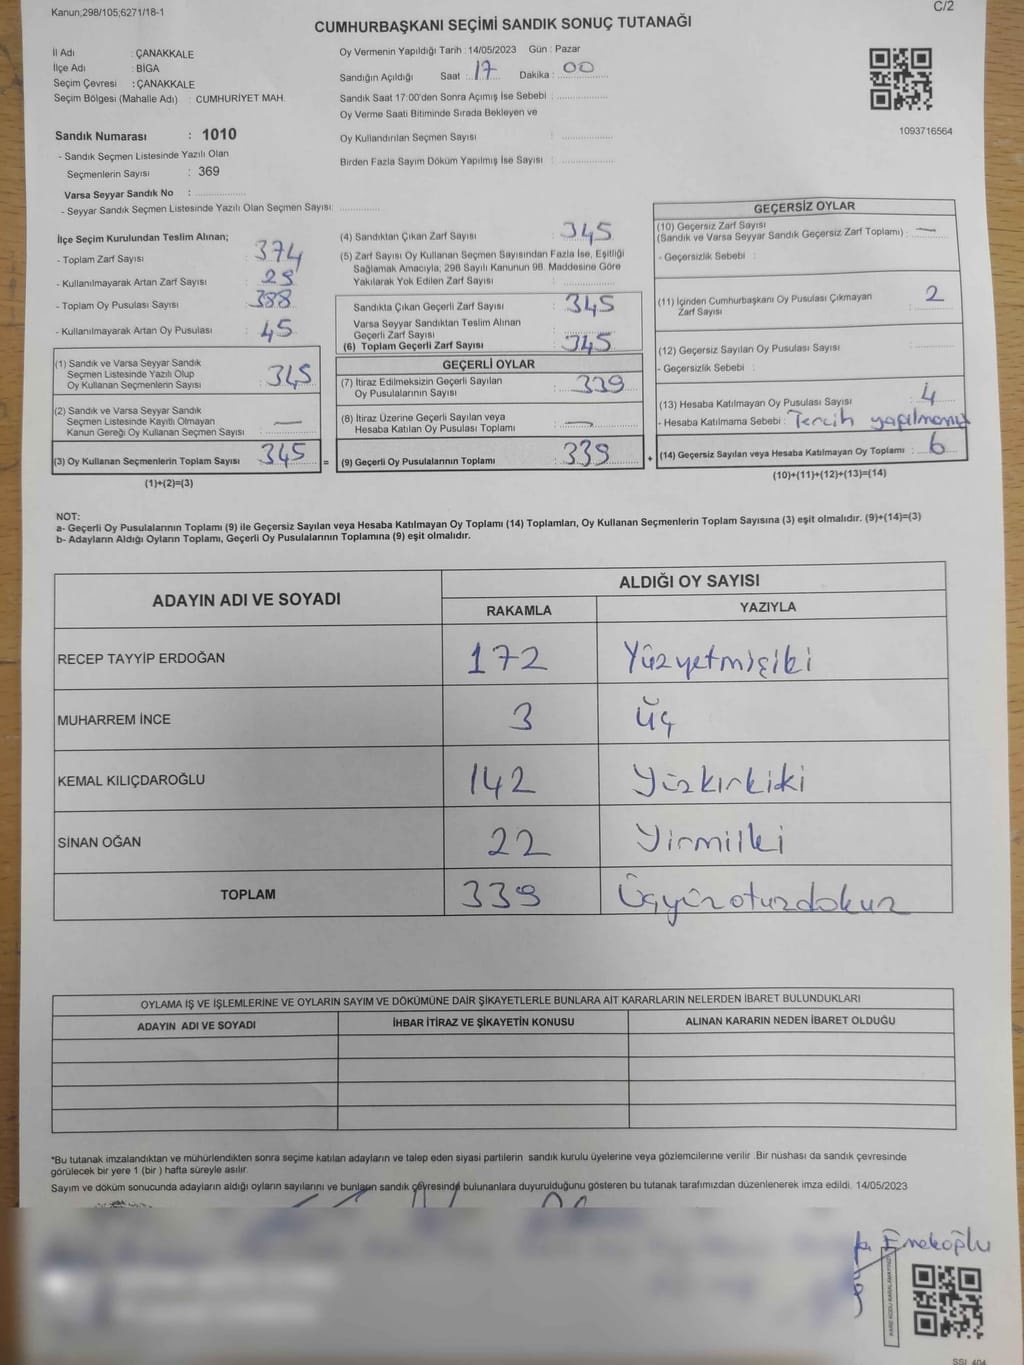 Kanun;298/105;6271/18-1
C/2
CUMHURBAŞKANI SEÇİMİ SANDIK SONUÇ TUTANAĞI
İl Adı : ÇANAKKALE
İlçe Adı : BİGA
Seçim Çevresi : ÇANAKKALE
Seçim Bölgesi (Mahalle Adı) : CUMHURİYET MAH.
Sandık Numarası : 1010
- Sandık Seçmen Listesinde Yazılı Olan
Seçmenlerin Sayısı : 369
Varsa Seyyar Sandık No : ..............
- Seyyar Sandık Seçmen Listesinde Yazılı Olan Seçmen Sayısı: ............
Oy Vermenin Yapıldığı Tarih : 14/05/2023 Gün : Pazar
Sandığın Açıldığı Saat : 17 Dakika : 00
Sandık Saat 17:00'den Sonra Açımış İse Sebebi : ..............
Oy Verme Saati Bitiminde Sırada Bekleyen ve
Oy Kullandırılan Seçmen Sayısı : ..............
Birden Fazla Sayım Döküm Yapılmış İse Sayısı : ..............
1093716564
İlçe Seçim Kurulundan Teslim Alınan;
- Toplam Zarf Sayısı : 374
- Kullanılmayarak Artan Zarf Sayısı : 29
- Toplam Oy Pusulası Sayısı : 388
- Kullanılmayarak Artan Oy Pusulası : 45
(1) Sandık ve Varsa Seyyar Sandık
Seçmen Listesinde Yazılı Olup
Oy Kullanan Seçmenlerin Sayısı : 345
(2) Sandık ve Varsa Seyyar Sandık
Seçmen Listesinde Kayıtlı Olmayan
Kanun Gereği Oy Kullanan Seçmen Sayısı : —
(3) Oy Kullanan Seçmenlerin Toplam Sayısı : 345 =
(1)+(2)=(3)
(4) Sandıktan Çıkan Zarf Sayısı : 345
(5) Zarf Sayısı Oy Kullanan Seçmen Sayısından Fazla İse, Eşitliği
Sağlamak Amacıyla, 298 Sayılı Kanunun 98. Maddesine Göre
Yakılarak Yok Edilen Zarf Sayısı : ..............
Sandıkta Çıkan Geçerli Zarf Sayısı : 345
Varsa Seyyar Sandıktan Teslim Alınan
Geçerli Zarf Sayısı : ..............
(6) Toplam Geçerli Zarf Sayısı : 345
GEÇERLİ OYLAR
(7) İtiraz Edilmeksizin Geçerli Sayılan
Oy Pusulalarının Sayısı : 339
(8) İtiraz Üzerine Geçerli Sayılan veya
Hesaba Katılan Oy Pusulası Toplamı : —
(9) Geçerli Oy Pusulalarının Toplamı : 339 +
GEÇERSİZ OYLAR
(10) Geçersiz Zarf Sayısı
(Sandık ve Varsa Seyyar Sandık Geçersiz Zarf Toplamı) : —
- Geçersizlik Sebebi :
(11) İçinden Cumhurbaşkanı Oy Pusulası Çıkmayan
Zarf Sayısı : 2
(12) Geçersiz Sayılan Oy Pusulası Sayısı : ..............
- Geçersizlik Sebebi :
(13) Hesaba Katılmayan Oy Pusulası Sayısı : 4
- Hesaba Katılmama Sebebi : Tercih yapılmamış
(14) Geçersiz Sayılan veya Hesaba Katılmayan Oy Toplamı : 6
(10)+(11)+(12)+(13)=(14)
NOT:
a- Geçerli Oy Pusulalarının Toplamı (9) ile Geçersiz Sayılan veya Hesaba Katılmayan Oy Toplamı (14) Toplamları, Oy Kullanan Seçmenlerin Toplam Sayısına (3) eşit olmalıdır. (9)+(14)=(3)
b- Adayların Aldığı Oyların Toplamı, Geçerli Oy Pusulalarının Toplamına (9) eşit olmalıdır.
ADAYIN ADI VE SOYADI
ALDIĞI OY SAYISI
RAKAMLA YAZIYLA
RECEP TAYYİP ERDOĞAN 172 Yüzyetmişiki
MUHARREM İNCE 3 Üç
KEMAL KILIÇDAROĞLU 142 Yüzkırkiki
SİNAN OĞAN 22 Yirmiiki
TOPLAM 339 Üçyüzotuzdokuz
OYLAMA İŞ VE İŞLEMLERİNE VE OYLARIN SAYIM VE DÖKÜMÜNE DAİR ŞİKAYETLERLE BUNLARA AİT KARARLARIN NELERDEN İBARET BULUNDUKLARI
ADAYIN ADI VE SOYADI İHBAR İTİRAZ VE ŞİKAYETİN KONUSU ALINAN KARARIN NEDEN İBARET OLDUĞU
*Bu tutanak imzalandıktan ve mühürlendikten sonra seçime katılan adayların ve talep eden siyasi partilerin sandık kurulu üyelerine veya gözlemcilerine verilir .Bir nüshası da sandık çevresinde
görülecek bir yere 1 (bir ) hafta süreyle asılır.
Sayım ve döküm sonucunda adayların aldığı oyların sayılarını ve bunların sandık çevresinde bulunanlara duyurulduğunu gösteren bu tutanak tarafımızdan düzenlenerek imza edildi. 14/05/2023
KARE KODU KARALAMAYINIZ
SSI_404